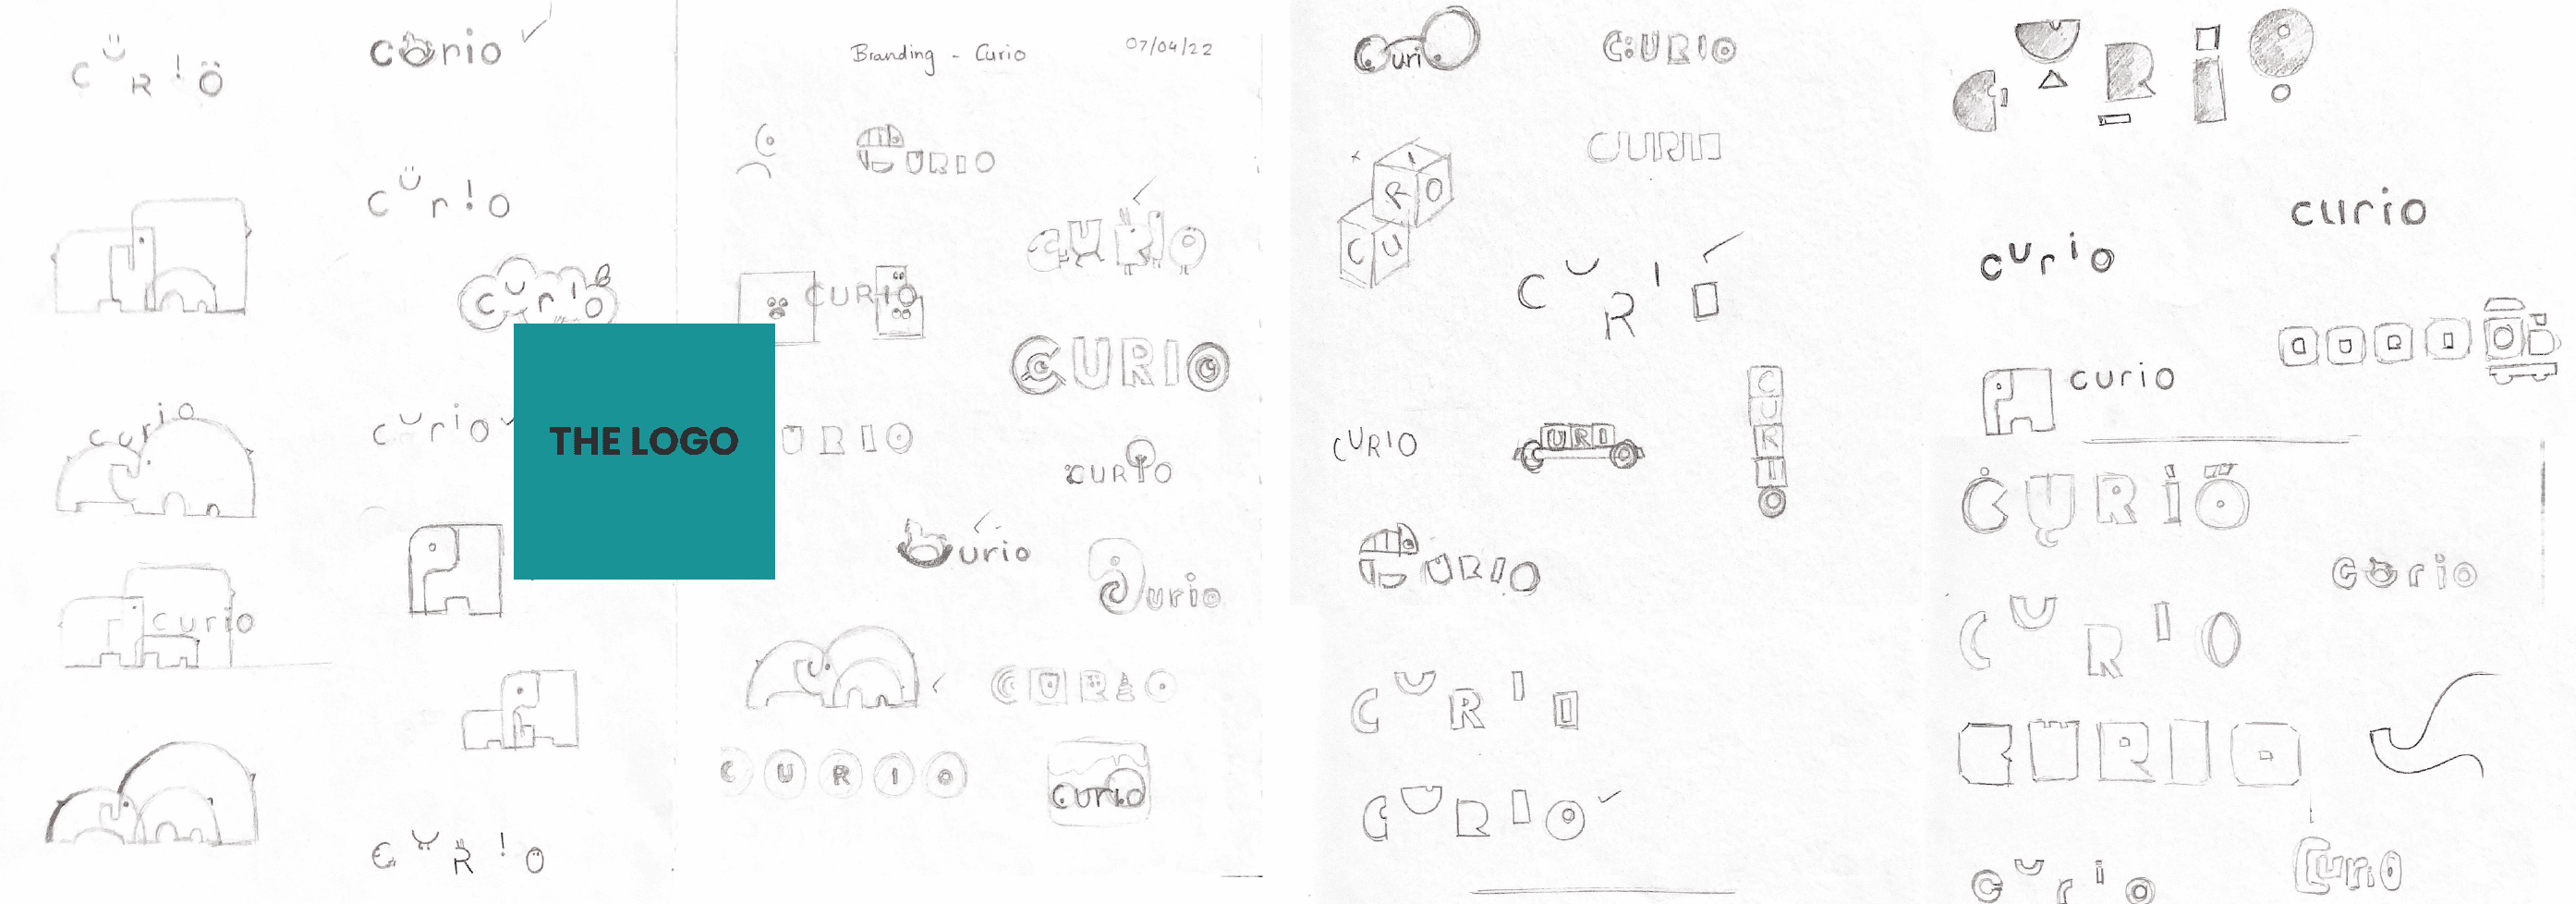 CUR!Ö
curio
Branding - Curio
07/04/22
Curi
C:URIO
URIO
CURIO
Cür!o
curio
CURIO
CURIO
I
R O
C U
CURIO
curio
curio
CURIO
curio
CURIO
curio
THE LOGO
URIO
CURIO
CURIO
URI
C
U
R
I
O
urio
urio
URIO
CURIO
curio
curio
CURIO
CURIO
CURIO
CURIO
curio
CURIO
CURIO
CUR!O
curio
Curio